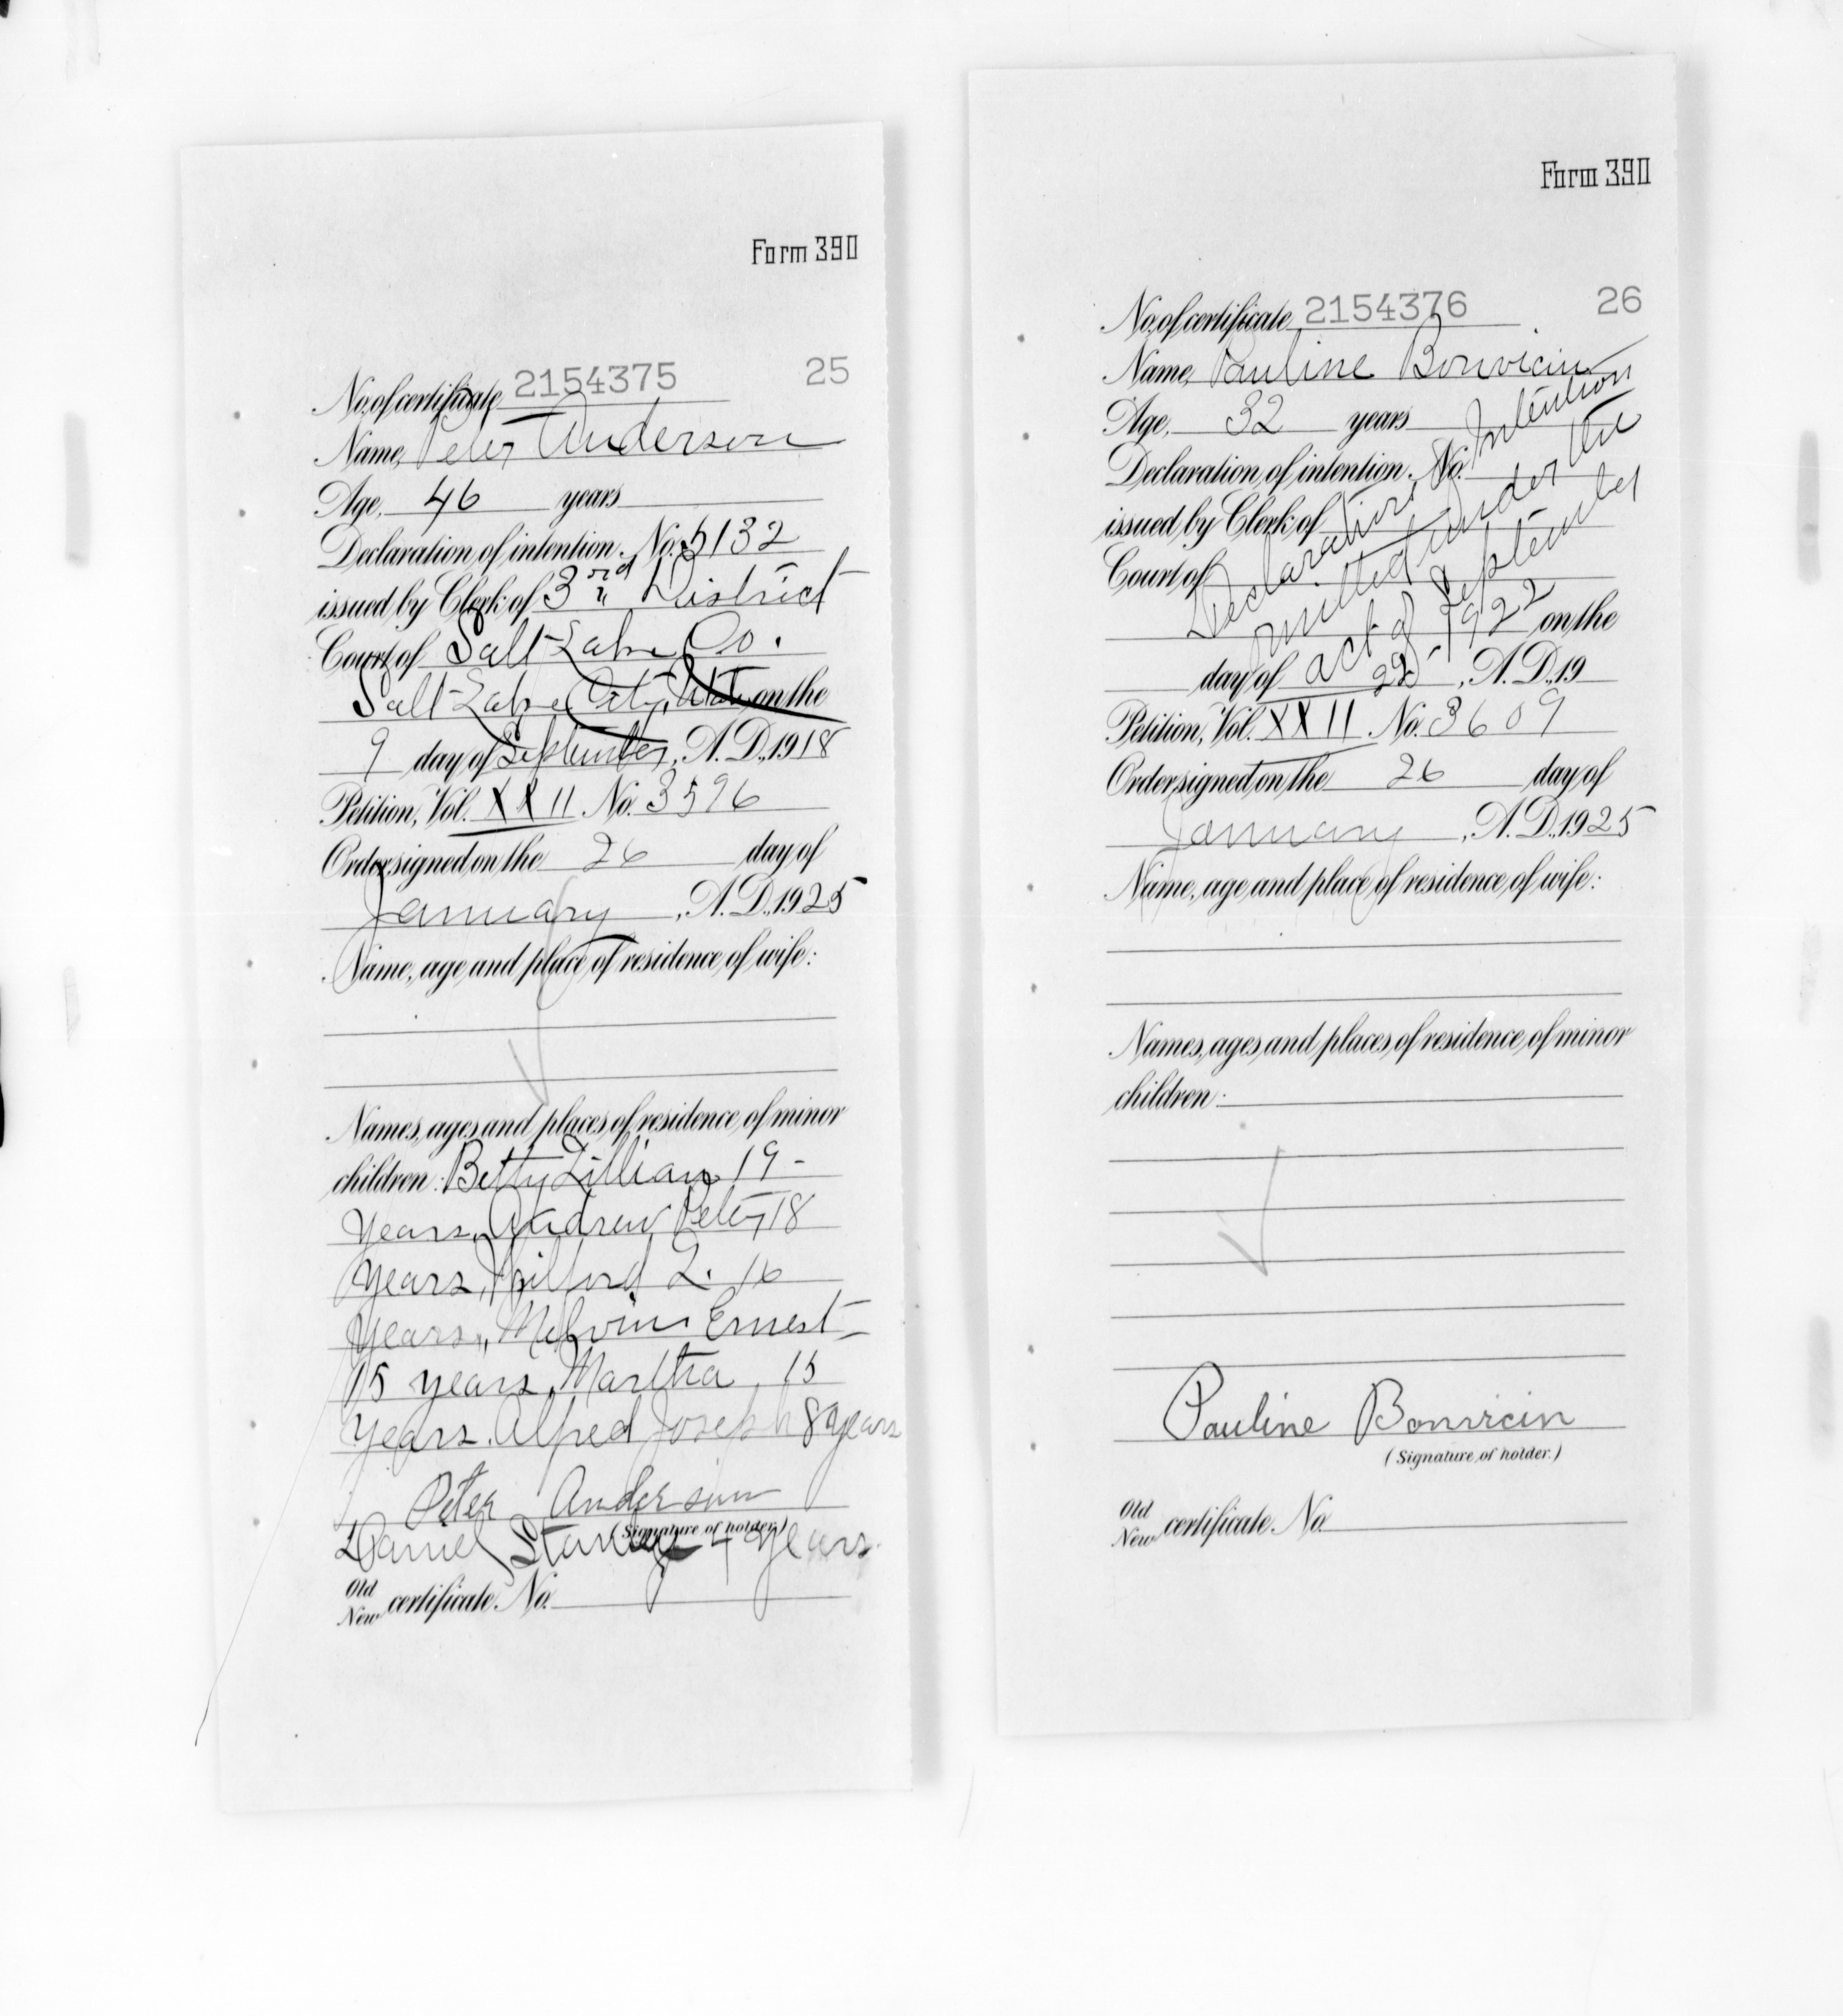 Form 390
No. of certificate 2154375 25
Name, Peter Anderson
Age, 46 years
Declaration of intention, No. 5132
issued by Clerk of 3rd District
Court of Salt Lake Co.
Salt Lake City, Utah, on the
9 day of September, A.D., 1918
Petition, Vol. XXII No. 3596
Order signed on the 26 day of
January, A.D., 1925
Name, age and place of residence of wife:
Names, ages and places of residence of minor
children: Betty Lillian 19 -
years, Andrew Peter 18
years, Milford L. 16
years, Melvin Ernest
15 years, Martha, 15
years. Alfred Joseph 8 years
Peter Anderson
(Signature of holder.)
Daniel Stanley 4 years.
Old
New certificate, No.
Form 390
No. of certificate 2154376 26
Name, Pauline Bonvicin
Age, 32 years
Declaration of intention, No.
issued by Clerk of
Court of
on the
day of 22, A.D., 19
Declaration Intention
omitted under the
act of September
22 - 1922
Petition, Vol. XXII No. 3609
Order signed on the 26 day of
January, A.D., 1925
Name, age and place of residence of wife:
Names, ages and places of residence of minor
children:
Pauline Bonvicin
(Signature of holder.)
Old
New certificate, No.